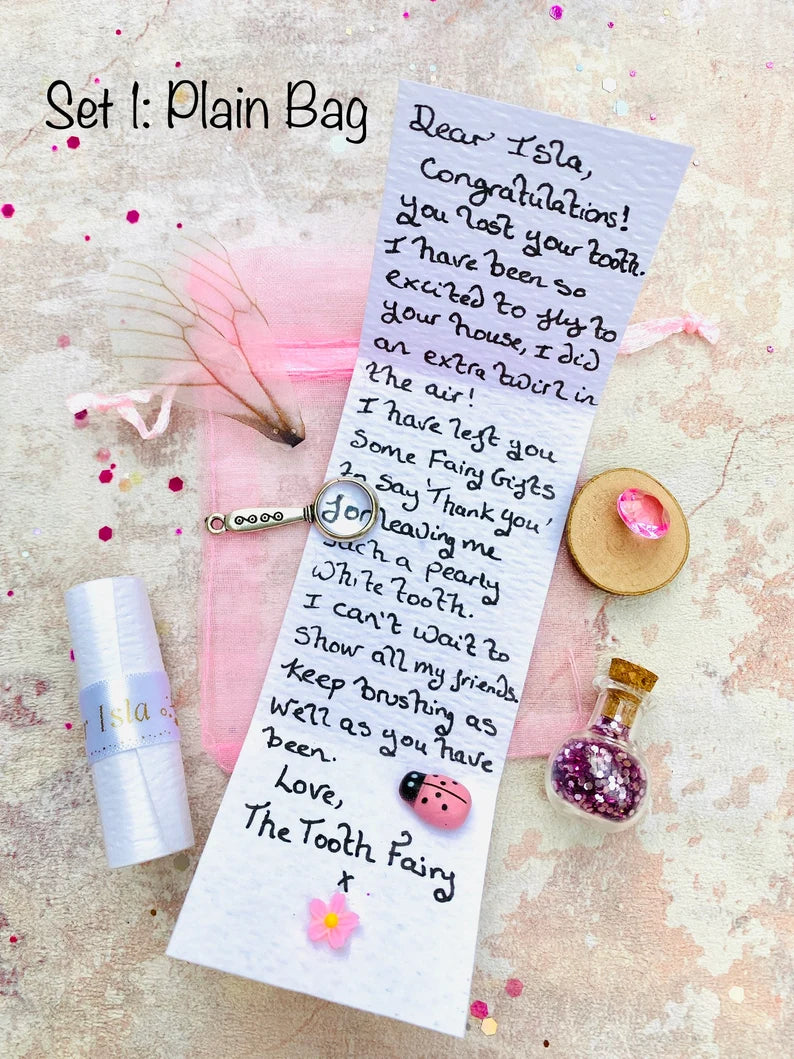 Set 1: Plain Bag
Dear Isla,
Congratulations!
you lost your tooth.
I have been so
excited to fly to
your house, I did
an extra twirl in
the air!
I have left you
some Fairy Gifts
to say 'Thank you'
for leaving me
such a pearly
white tooth.
I can't wait to
show all my friends.
Keep brushing as
well as you have
been.
Love,
The Tooth Fairy
x
Isla